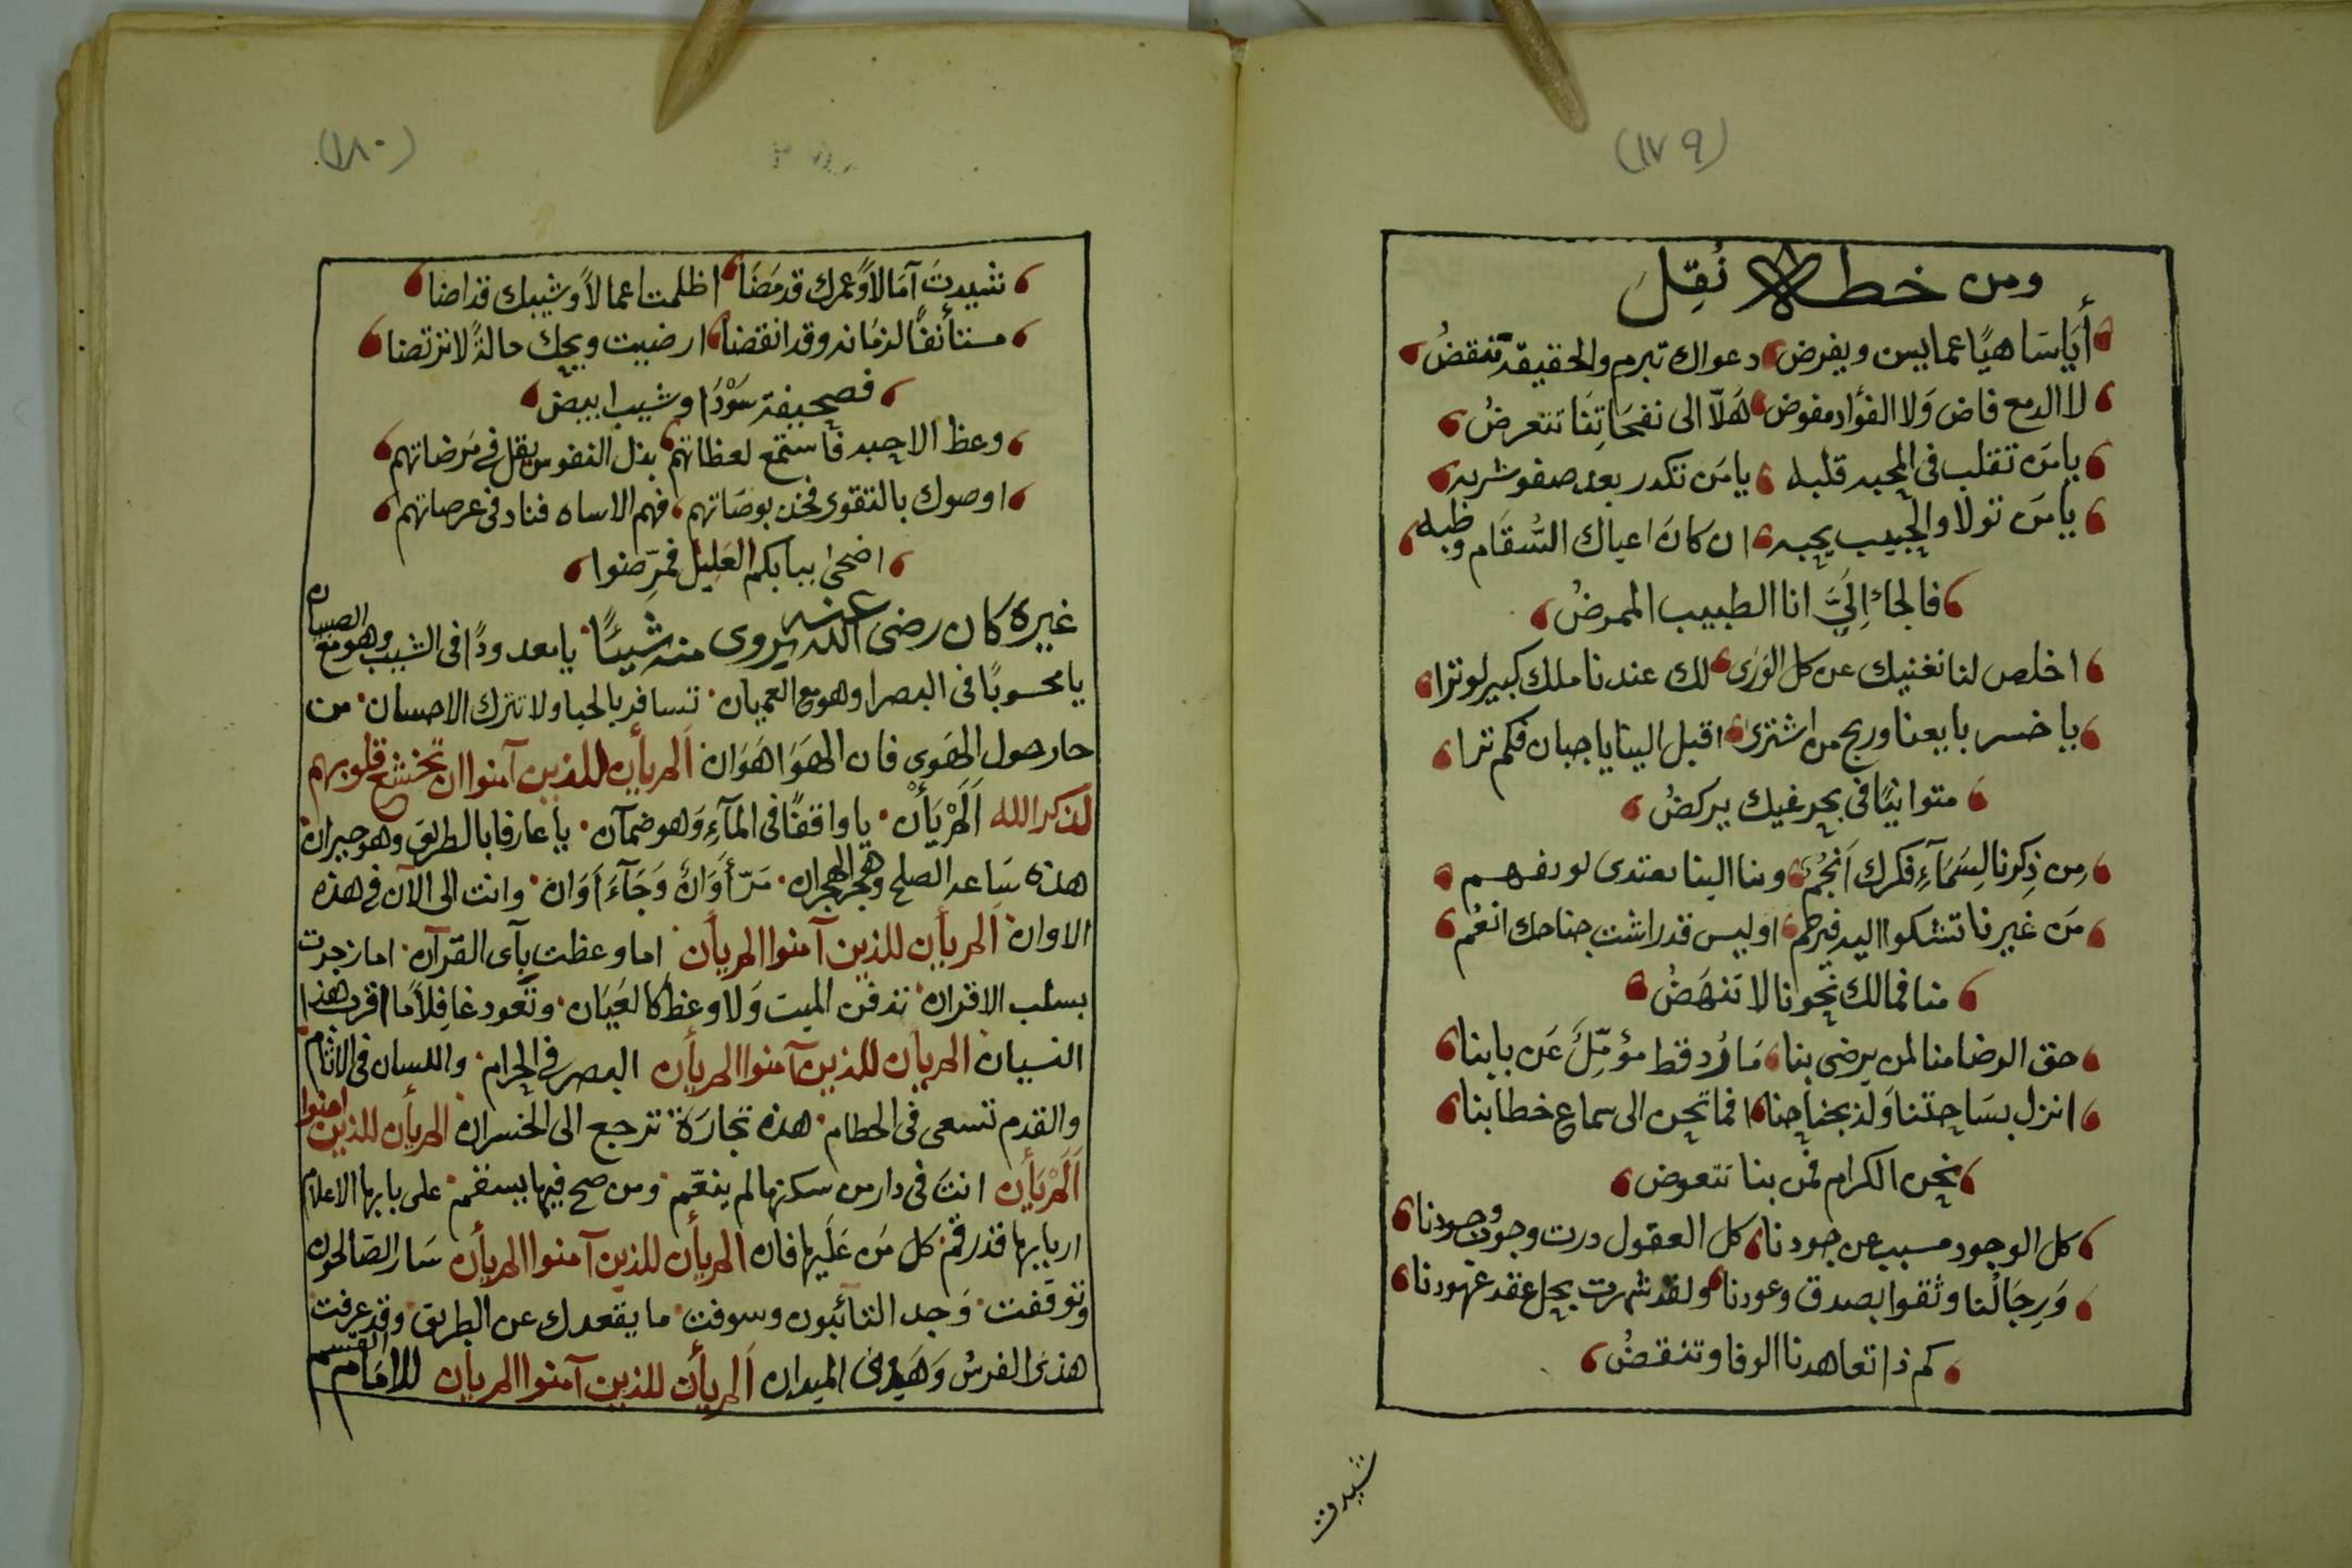 (١٧٩)
ومن خطه نُقِلَ
أَيَاسَاهيًا عما يسن ويفرض دعواك تبرم والحقيقة تنقضُ
لا الدمع فاض وَلا الفؤاد مفوض هَلّا الى نفحَاتِنَا تتعرضُ
يا مَن تقلب فى المحبه قلبه يا مَن تكدر بعد صفو شربه
يا مَن تولا والحبيب يحبه ان كان اعياك السُّقَام وطبه
فالجاء اِلَيَّ انا الطبيب الممرضُ
اخلص لنا نغنيك عن كل الوَرَى لك عندنا ملك كبير لو ترا
يا خسر بايعنا وربح من اشترى اقبل الينا يا جبان فكم ترا
متوانيًا فى بحر غيك يركضُ
مِن ذِكرنا لِسَمَآءِ فكرك اَنجُم وبنا الينا يهتدى لو يفهم
مَن غيرنا تشكوا اليه فيرحم اوليس قد راشت جناحك انعُم
منا فمالك نحونا لا تنهَضُ
حق الرضا منا لمن يرضى بنا مَا رُد قط مؤمِّلٌ عَن بابنا
انزل بسَاحتنا وَلذ بجنابنا افما تحن الى سماع خطابنا
نحن الكرام فمن بنا تتعوض
كل الوجود مسبب عن جودنا كل العقول درت وجوب وجودنا
وَرِجَالُنا وثقوا بصدق وعودنا ولقد شهرت بحل عقد عهودنا
كم ذا تعاهدنا الوفا وتنقضُ
شيدت
(١٨٠)
شيدتَ آمَالاً وَّعمرك قد مَضَا اظلمت اعمالاً وشيبك قد اضا
مستأنفًا لزمَانه وقد انقضا ارضيت ويحك حالةً لا ترتضا
فصحيفة سَوْدَا وشيب ابيض
وعظ الاحبه فاستمع لعظاتهم بذل النفوس يقل فى مَرضاتهم
اوصوك بالتقوى فخذ بوصَاتهم فهم الاساه فناد فى عرصاتهم
اضحى ببابكم العَليل فمَرِّضوا
غيره كان رضى الله عنه يروى منه شيئًا يا معدودًا فى الشيب وهو مع الصبيان
يا محسوبًا فى البصرا وهو مع العميان تسافر بالحبا ولا تترك الاحسان من
حار حول الهَوى فان الهَوَا هَوَان اَلم يأن للذين آمنوا ان تخشع قلوبهم
لذكر الله اَلَمْ يَأْن يا واقفًا فى المآءِ وَهو ضمآن يا عارفا بالطريق وهو حيران
هذه سَاعه الصلح وهجر الهجران مَرّ أَوَانٌ وَجَآءَ اَوَان وانت الى الآن فى هذه
الاوان اَلم يأن للذين آمنوا الم يأن اما وعظت بآى القرآن اما زجرت
بسلب الاقران تدفن الميت وَلا وعظ كالعَيَان وتَعود غافِلاً مَا اقرب هذا
النسيان الم يأن للذين آمنوا الم يأن البصر فى الحرام واللسان فى الاثام
والقدم تسعى فى الحطام هذه تجارَة ترجع الى الخسران الم يأن للذين امنوا
اَلَمْ يَأن انتَ فى دار من سكنها لم ينعّم ومن صح فيها يسقم على بابها الاعلام
اربابها قد رقم كل مَن عَلَيها فان الم يأن للذين آمنوا الم يأن سَار الصّالحون
وتوقفت وَجد التائبون وسوفت ما يقعدك عن الطريق وقد عرفت
هذى الفرسُ وَهَذى الميدان اَلم يأن للذين آمنوا الم يأن للامَام القسم